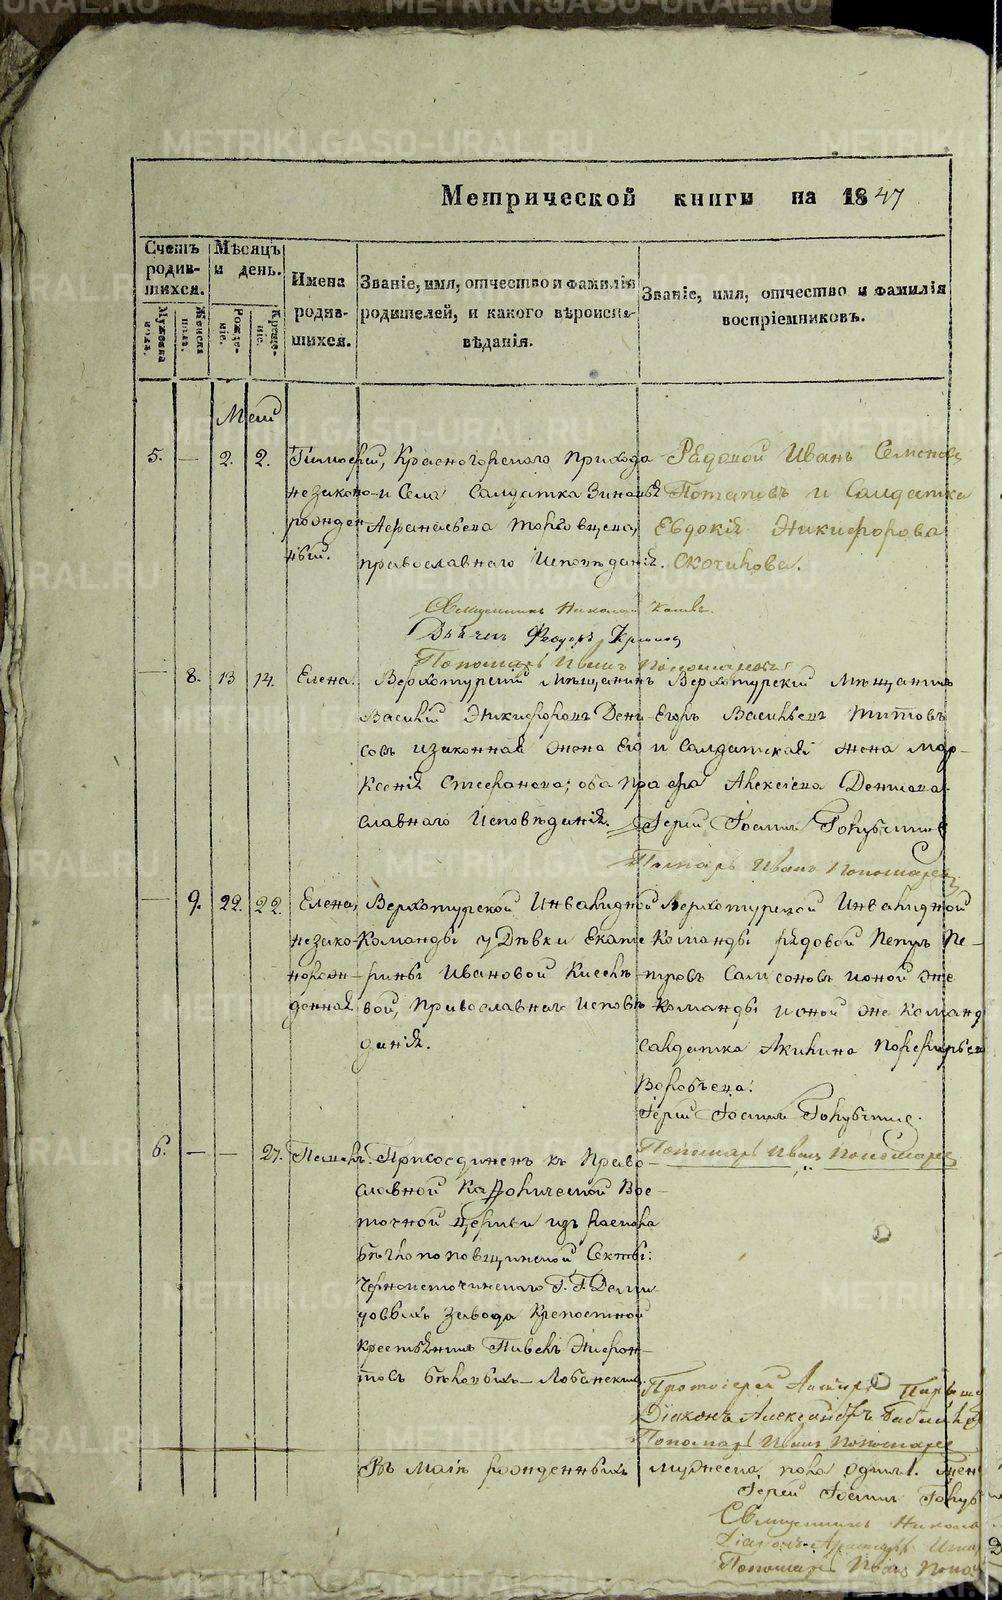 METRIKI.GASO-URAL.RU
Метрической книги на 1847
Счетъ родив- шихся.
Мужеска пола.
Женска пола.
Мѣсяцъ и день.
Рожде- ніе.
Креще- ніе.
Имена родив- шихся.
Званіе, имя, отчество и фамилія родителей, и какого вѣроиспо- вѣданія.
Званіе, имя, отчество и фамилія воспріемниковъ.
Маій
5. — 2. 2.
Тимофей,
незаконо-
рожден
ный.
Красногорскаго прихода
и Села Салдатка Зиновья
Афанасьева
православнаго Исповѣданія.
Рядовой Иванъ Семеновъ
Потаповъ и Салдатка
Евдокія Никифорова
Скочихова.
Священникъ Николай
Діаконъ Феодоръ
Пономарь Иванъ Пономаревъ
— 8. 13 14. Елена.
Верхотурскій Мѣщанинъ
Василій Никифоровъ Дени-
совъ и законная жена Его
Ксенія Стефанова; оба пра
славнаго Исповѣданія.
Верхотурскій Мѣщанинъ
Егоръ Васильевъ Титовъ
и Салдатская жена Мар-
фа Алексіева Денисова.
Іерей
Пономарь Иванъ Пономаревъ
— 9. 22. 22.
Елена,
незако-
норож-
денная
Верхотурской Инвалидной
Команды у Дѣвки Екате
рины Ивановой Киселе-
вой, Православнаго Исповѣ
данія.
Верхотурской Инвалидной
Команды рядовой Петръ Пе-
тровъ Самсоновъ и оной же
Команды и оной же Команд
салдатка Акилина Порфирьева
Воробьева.
Іерей
Пономарь Иванъ Пономаревъ
6. — — 27. Павелъ.
Присоединенъ къ Право-
славной Каѳолической Вос-
точной Церкви изъ раскола
бѣглопоповщинской Секты:
Черноисточинскаго Г.Г. Деми
довыхъ завода Крепостной
крестьянинъ Павелъ
Протоіерей
Діаконъ Александръ
Пономарь Иванъ Пономаревъ
Въ Маіѣ рожденныхъ мужеска пола одинъ. Жен
Іерей
Священникъ Никола
Діаконъ
Пономарь Иванъ Поно